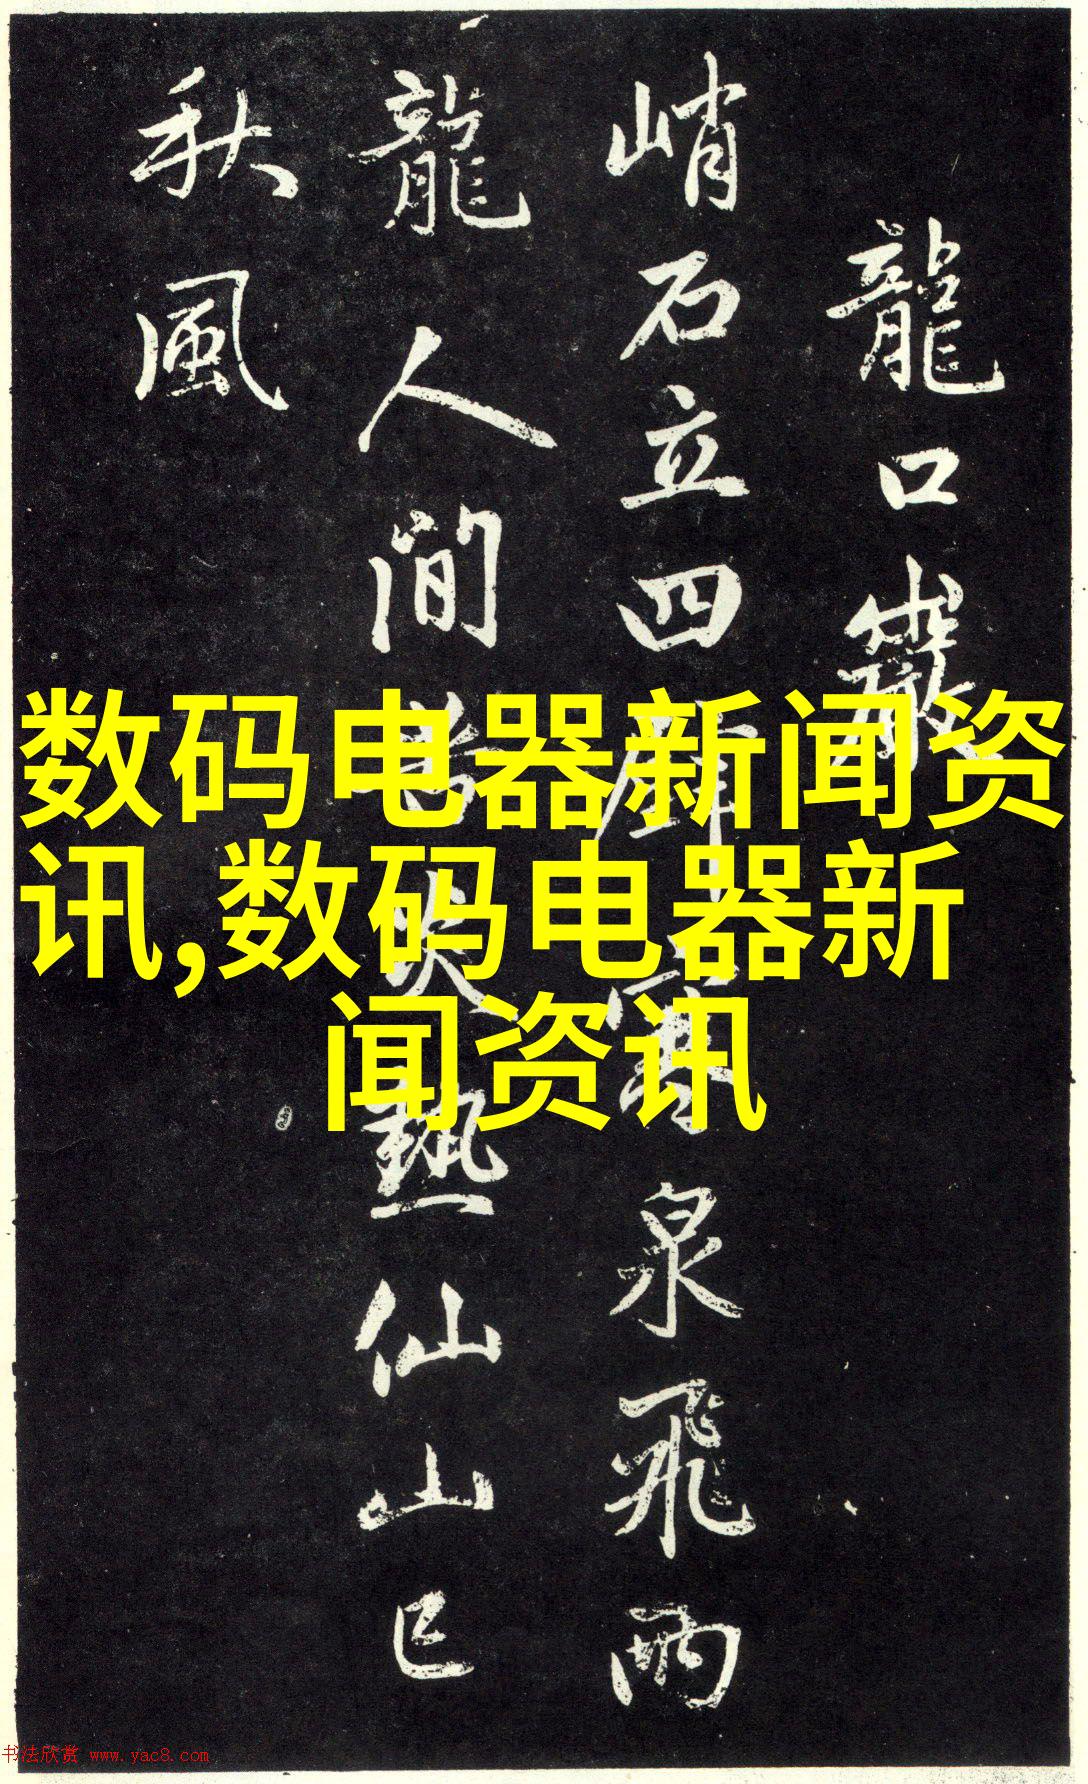 龍口巖
峭石立四壁寒泉飛兩
龍人間苦炎熱仙山已
秋風
数码电器新闻资
讯,数码电器新
闻资讯
书法欣赏 www.yac8.com